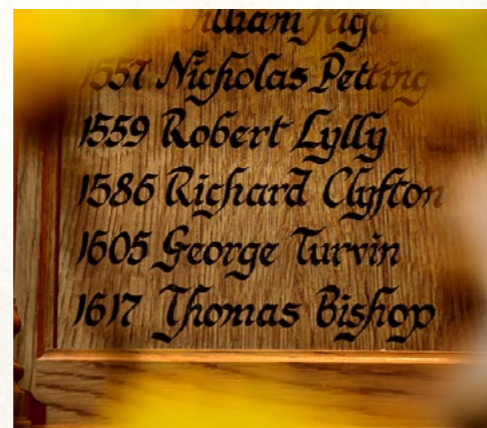 William
1557 Nicholas Petting
1559 Robert Lylly
1586 Richard Clyfton
1605 George Turvin
1617 Thomas Bishop